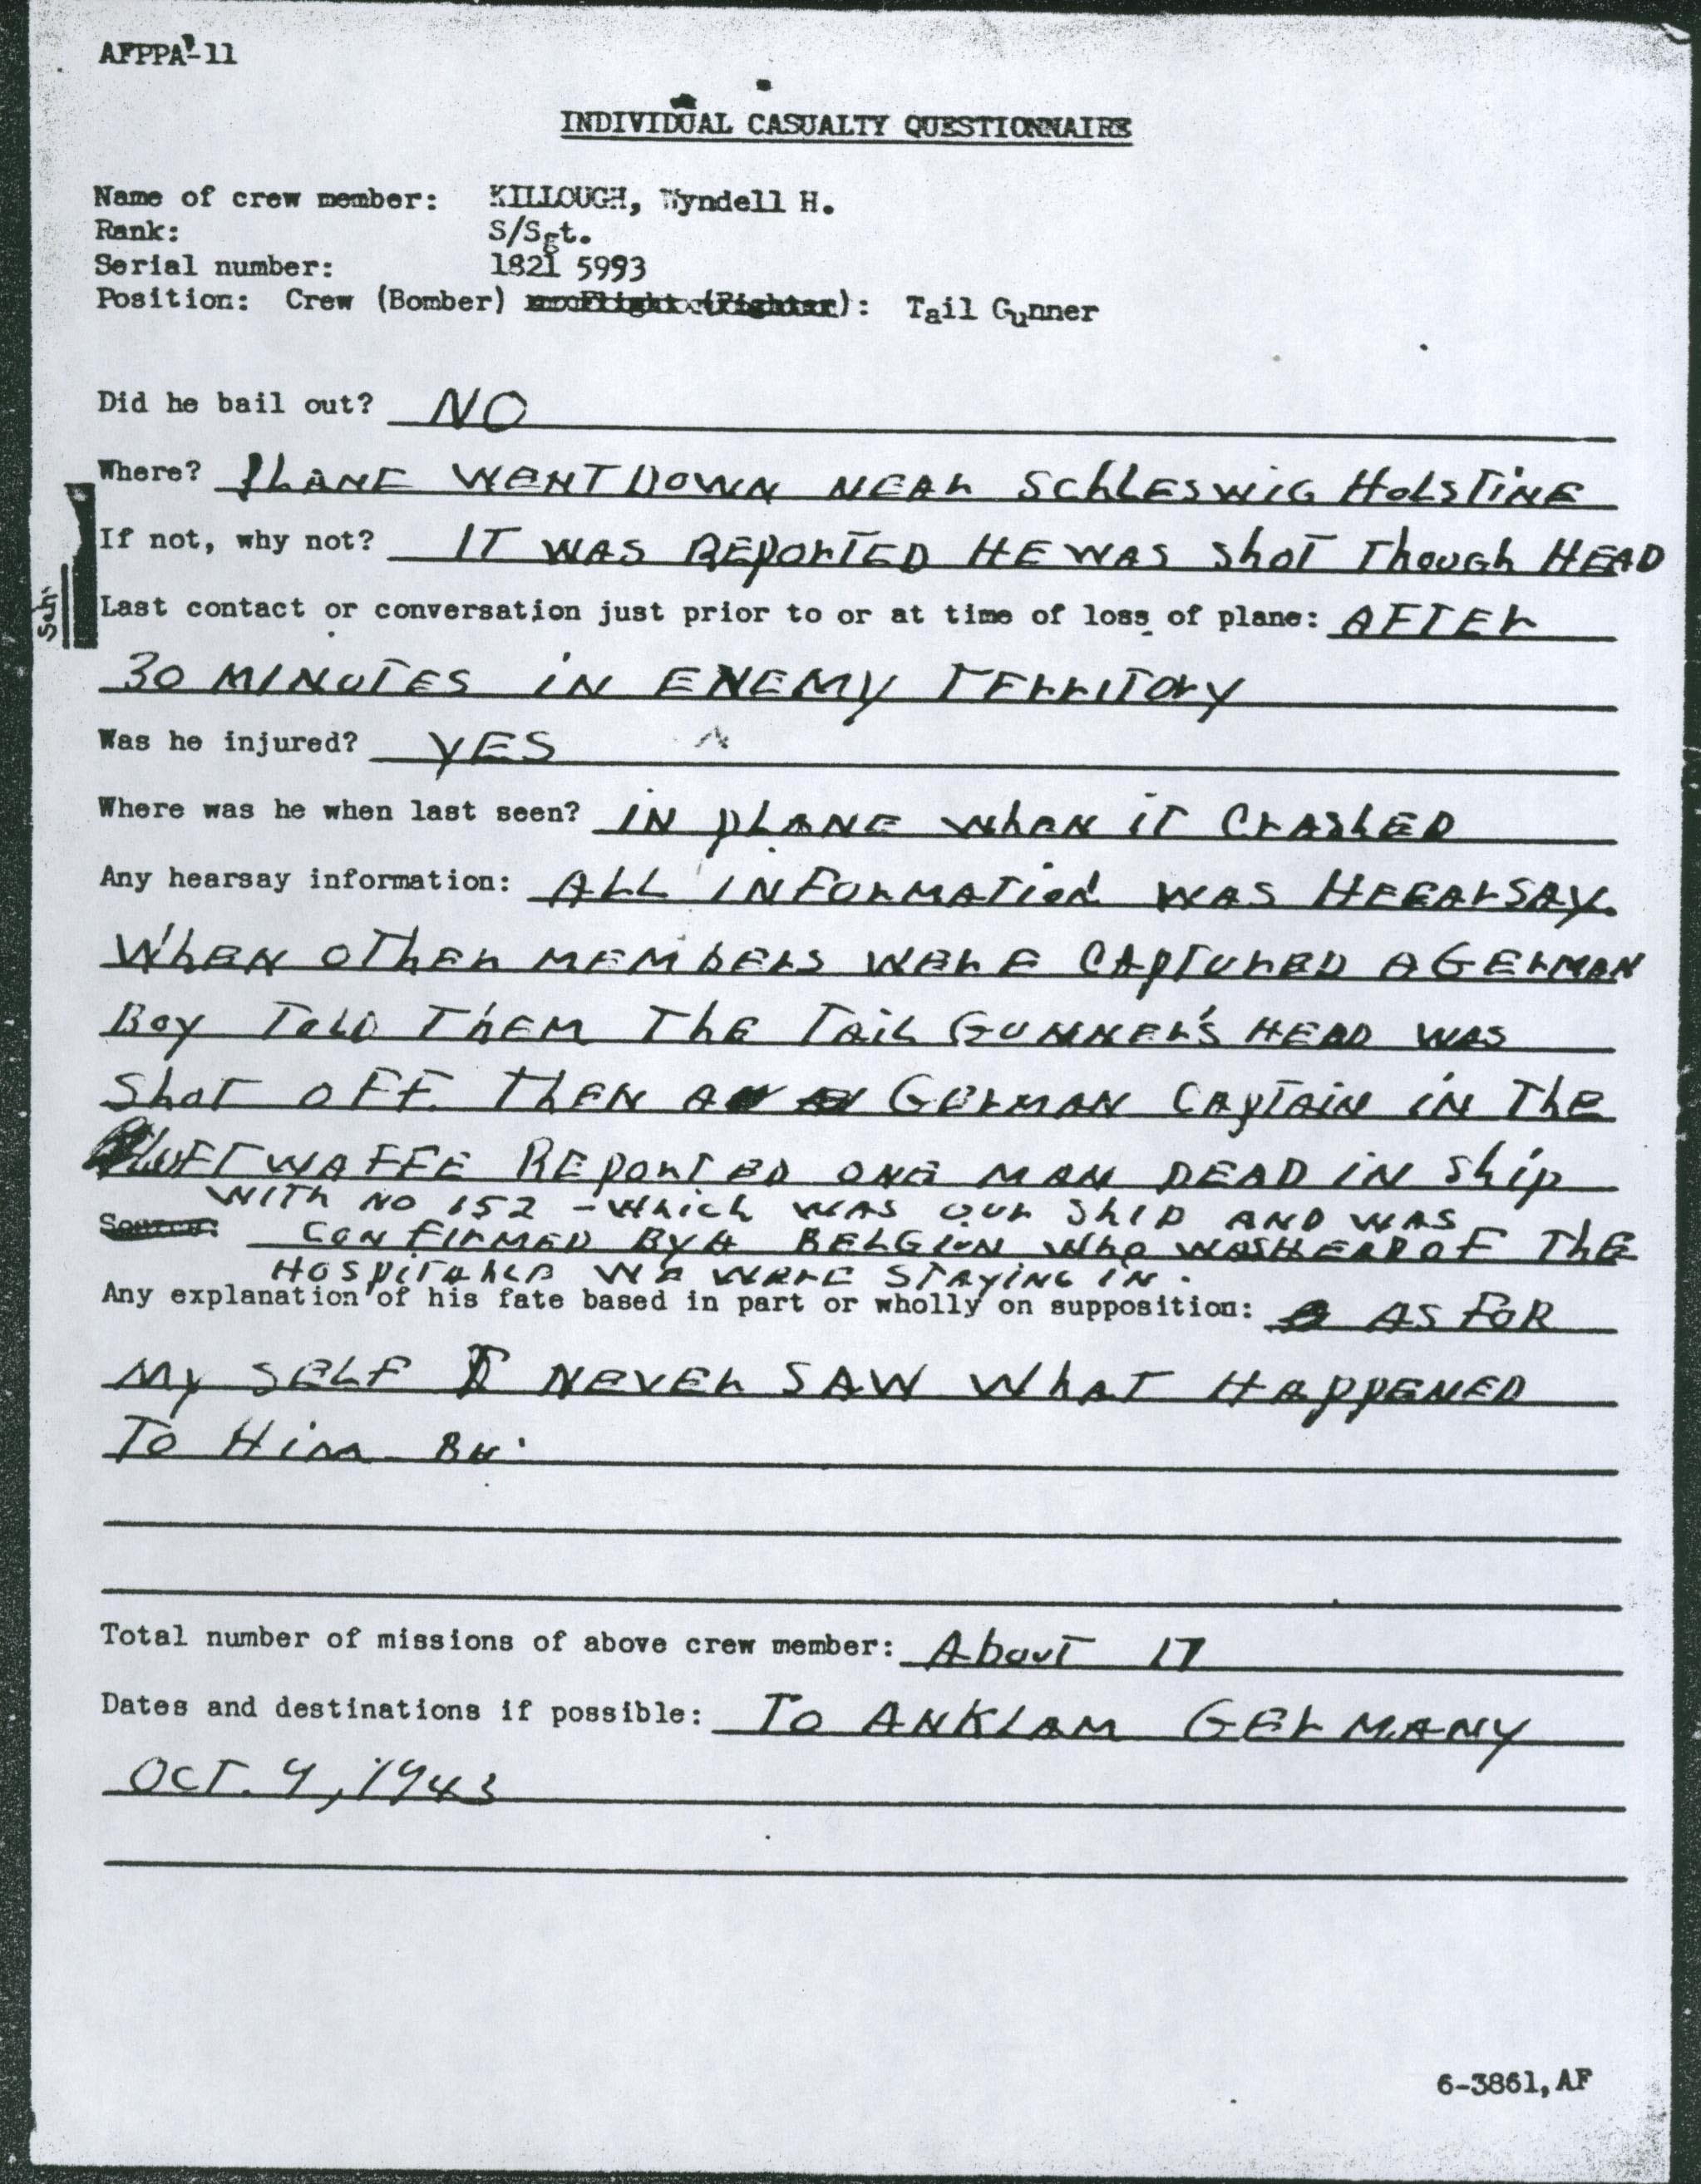 AFPPA-11
INDIVIDUAL CASUALTY QUESTIONNAIRE
Name of crew member: KILLOUGH, Wyndell H.
Rank: S/Sgt.
Serial number: 1821 5993
Position: Crew (Bomber) or Flight (Fighter): Tail Gunner
Did he bail out? NO
Where? PLANE WENT DOWN NEAR SCHLESWIG HOLSTINE
If not, why not? IT WAS REPORTED HE WAS SHOT THOUGH HEAD
Last contact or conversation just prior to or at time of loss of plane: AFTER
30 MINUTES IN ENEMY TERRITORY
Was he injured? YES
Where was he when last seen? IN PLANE WHEN IT CRASHED
Any hearsay information: ALL INFORMATION WAS HEEARSAY.
WHEN OTHER MEMBERS WERE CAPTURED A GERMAN
BOY TOLD THEM THE TAIL GUNNER'S HEAD WAS
SHOT OFF. THEN A GERMAN CAPTAIN IN THE
LUFTWAFFE REPORTED ONE MAN DEAD IN SHIP
WITH NO 152 - WHICH WAS OUR SHIP AND WAS
Source: CONFIRMED BY A BELGION WHO WAS HEAD OF THE
WE WERE STAYING IN.
Any explanation of his fate based in part or wholly on supposition: AS FOR
MY SELF I NEVER SAW WHAT HAPPENED
TO HIM
Total number of missions of above crew member: ABOUT 17
Dates and destinations if possible: TO ANKLAM GERMANY
OCT. 9, 1943
6-3861, AF